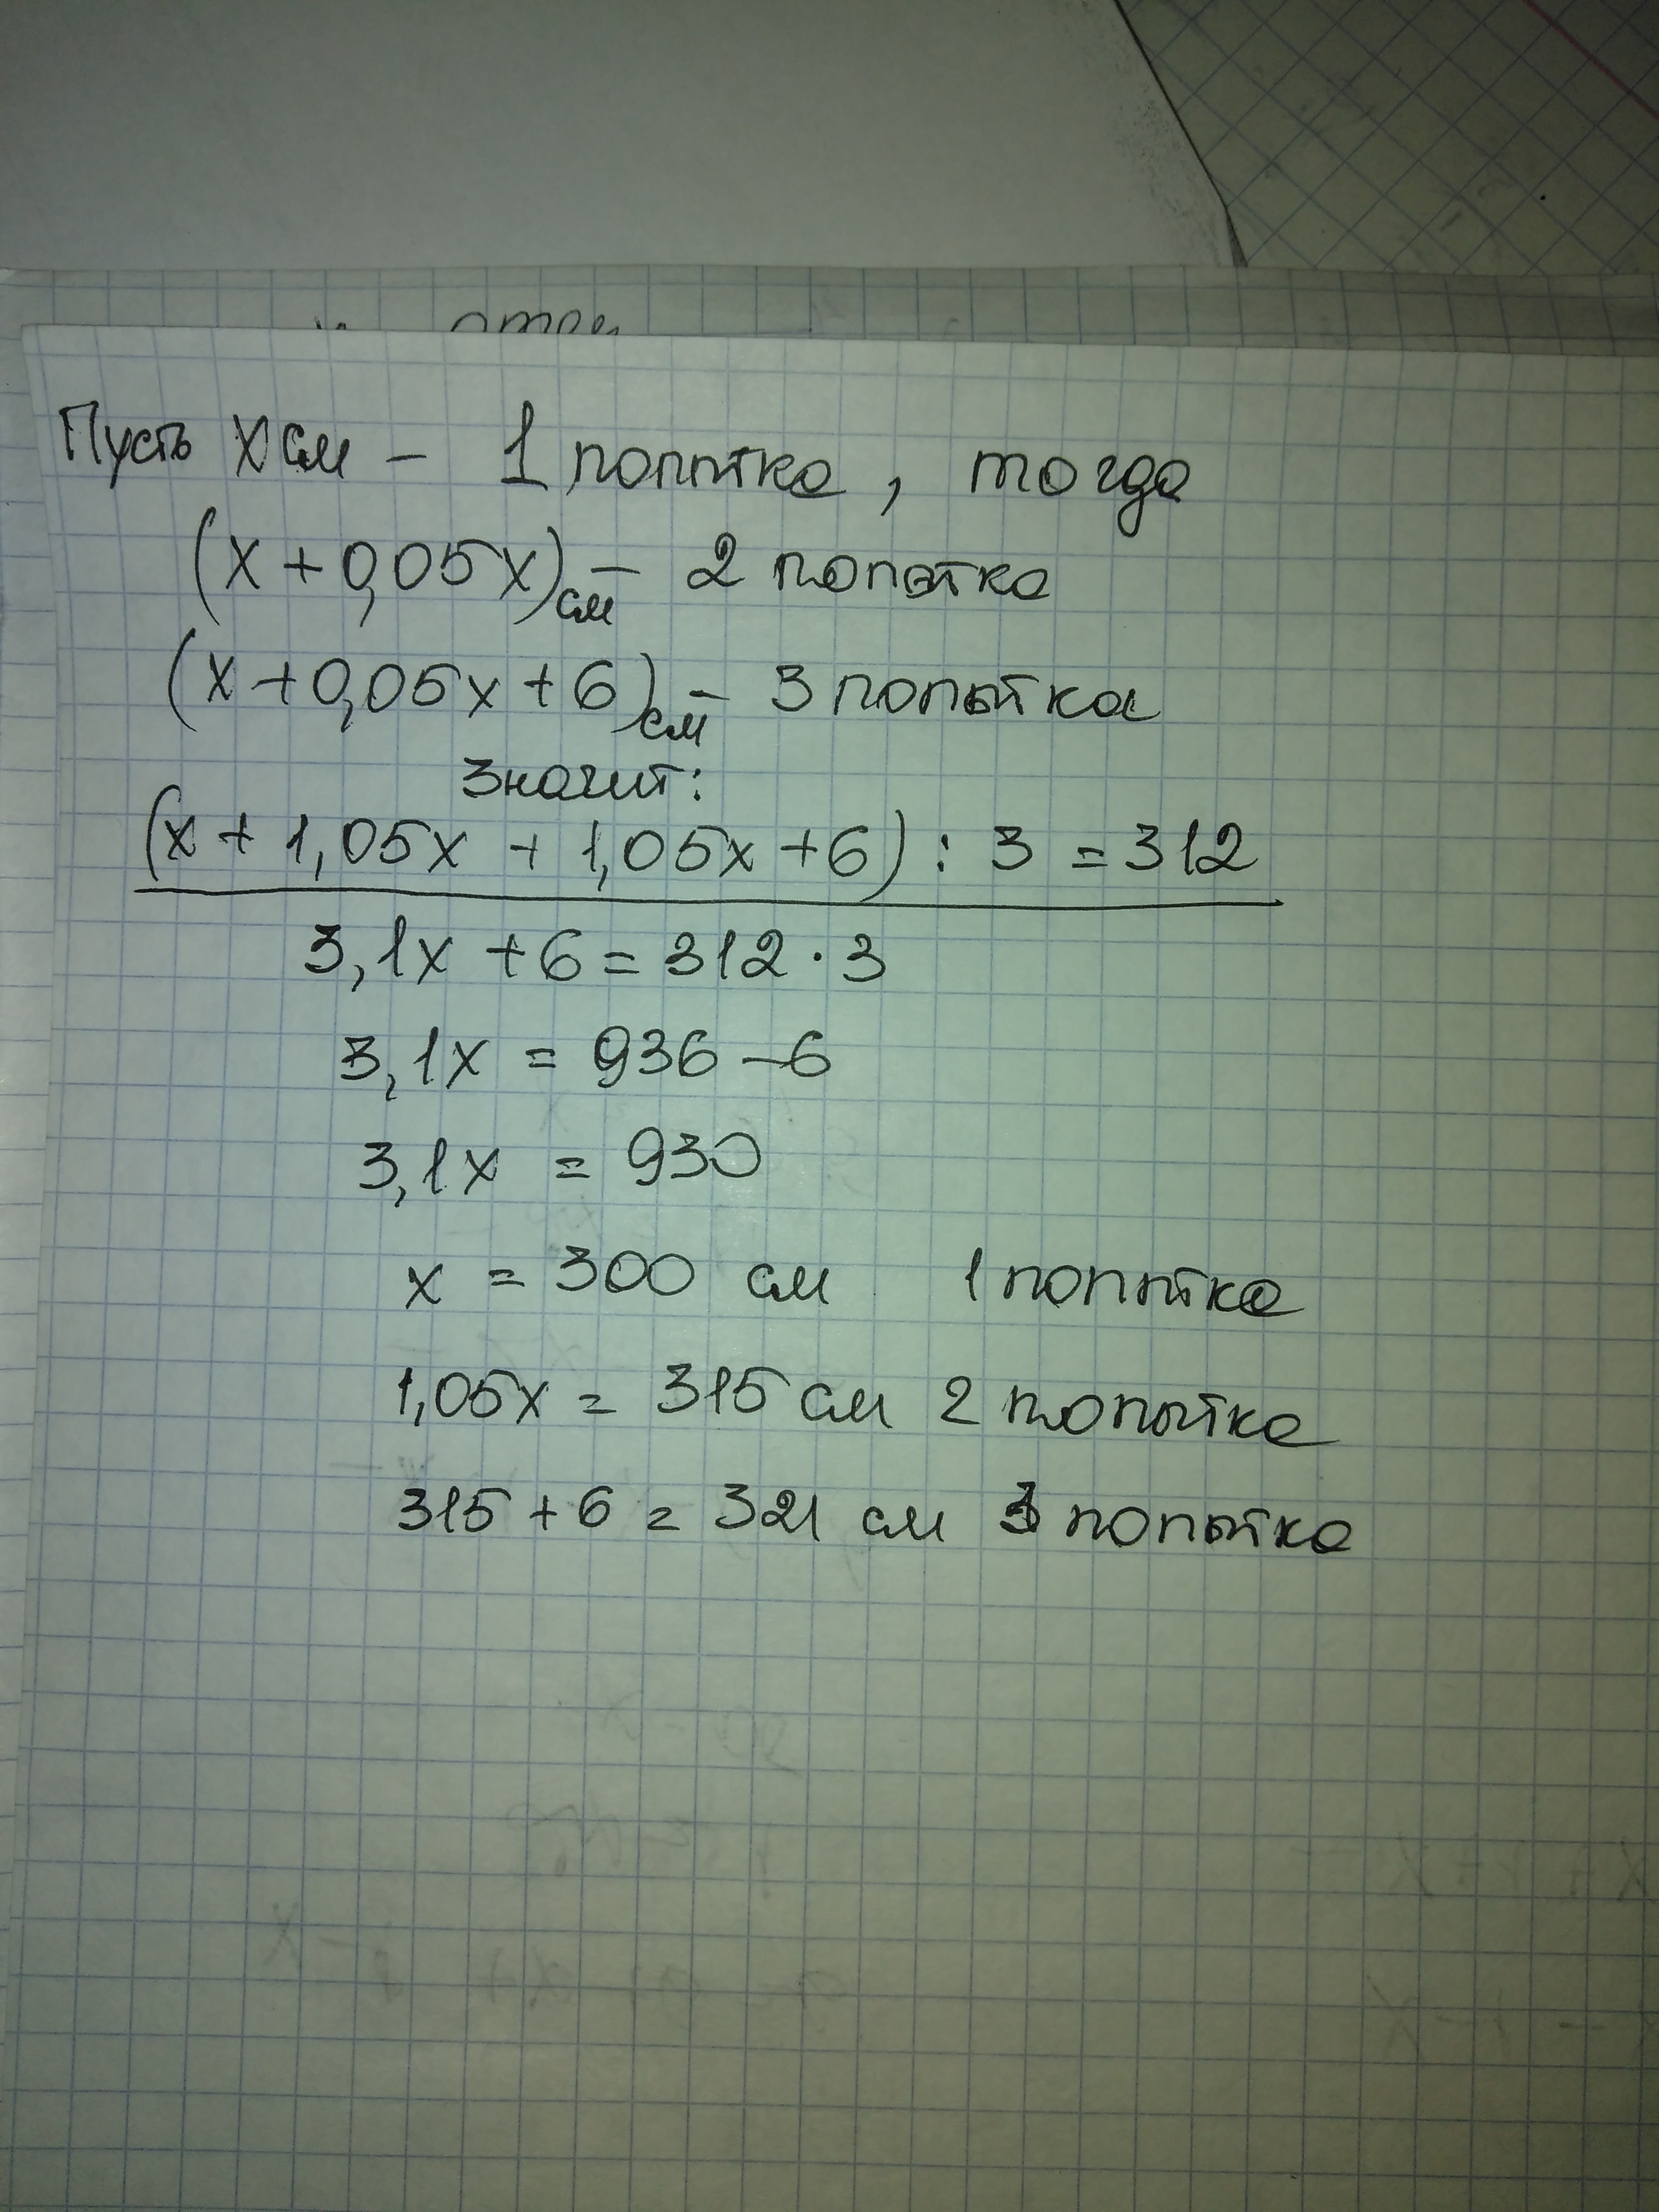 Пусть x см – 1 попытка, тогда
(x + 0,05x) см – 2 попытка
(x + 0,05x + 6) см – 3 попытка
Значит:
(x + 1,05x + 1,05x + 6) : 3 = 312
3,1x + 6 = 312 · 3
3,1x = 936 – 6
3,1x = 930
x = 300 см 1 попытка
1,05x = 315 см 2 попытка
315 + 6 = 321 см 3 попытка